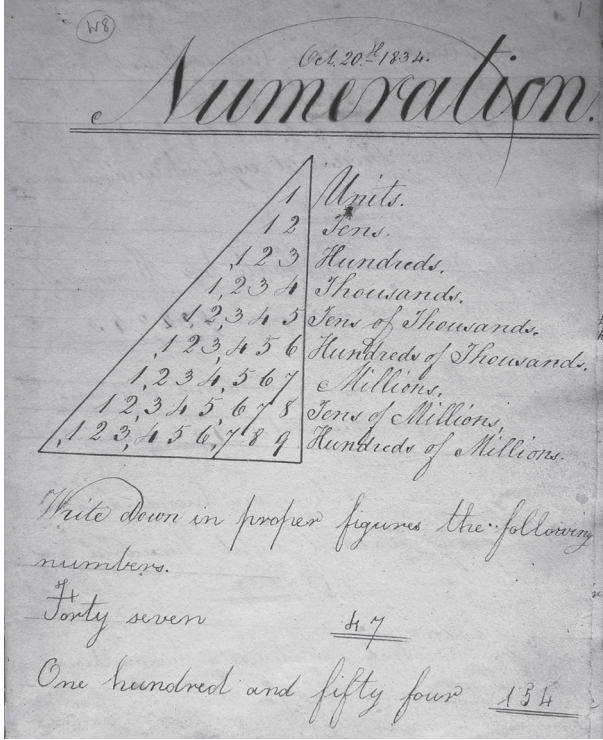 W8
1
Oct. 20th 1834.
Numeration.
1 Units.
1 2 Tens.
,1 2 3 Hundreds.
1,2 3 4 Thousands.
1 2,3 4 5 Tens of Thousands.
,1 2 3,4 5 6 Hundreds of Thousands.
1,2 3 4,5 6 7 Millions.
1 2,3 4 5,6 7 8 Tens of Millions,
,1 2 3,4 5 6,7 8 9 Hundreds of Millions.
Write down in proper figures the following
numbers.
Forty seven 47
One hundred and fifty four 154